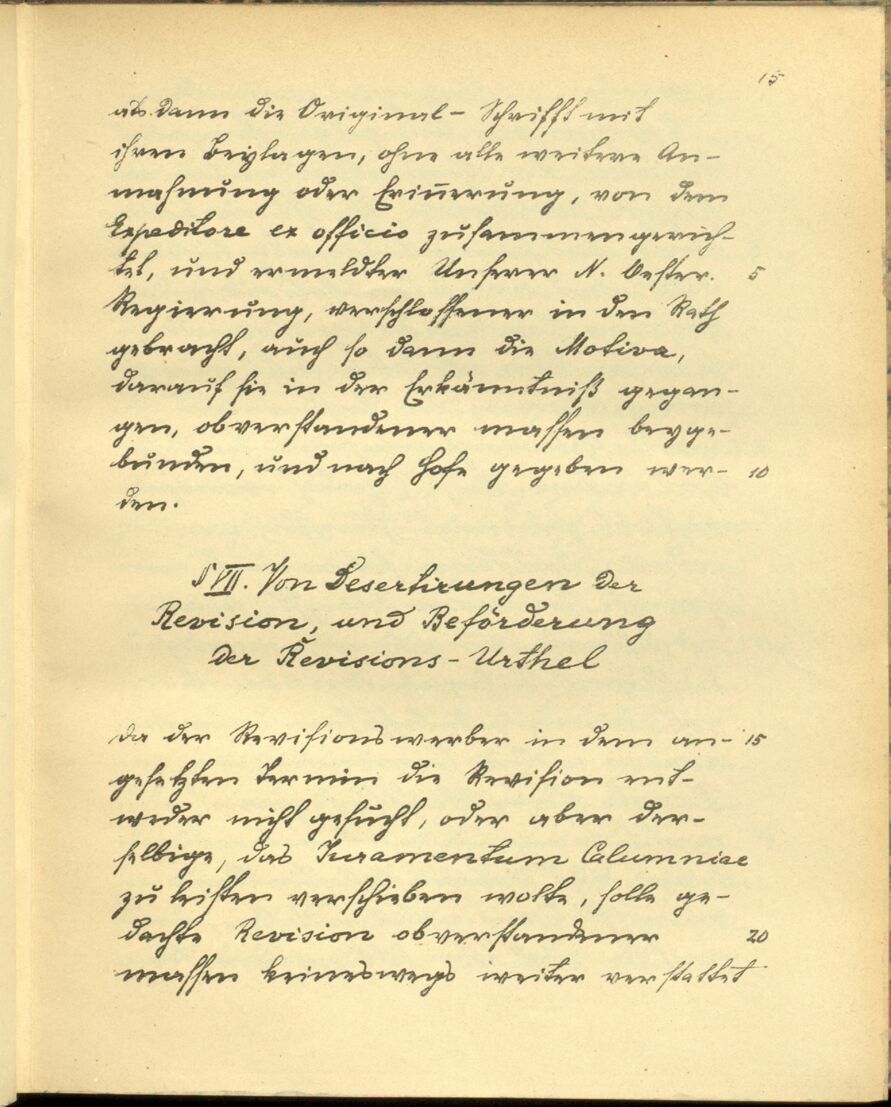 15
als dann die Original-Schrifft mit
ihren Beylagen, ohne alle weitere An-
mahnung oder Erin̄erung, von dem
Expeditore ex officio zusammengerich-
tet, und ermeldter Unserer N. Oester. 5
Regierung, verschlossener in den Rath
gebracht, auch so dann die Motiva,
darauf sie in der Erkänntniß gegan-
gen, obverstandener massen beyge-
bunden, und nach Hofe gegeben wer- 10
den.
§ VII. Von Desertirungen der
Revision, und Beförderung
der Revisions-Urthel
Da der Revisionswerber in dem an- 15
gesetzten Termin die Revision ent-
weder nicht gesucht, oder aber der-
selbige, das Juramentum Calumniae
zu leisten verschieben wolte, solle ge-
dachte Revision obverstandener 20
massen keineswegs weiter verstattet